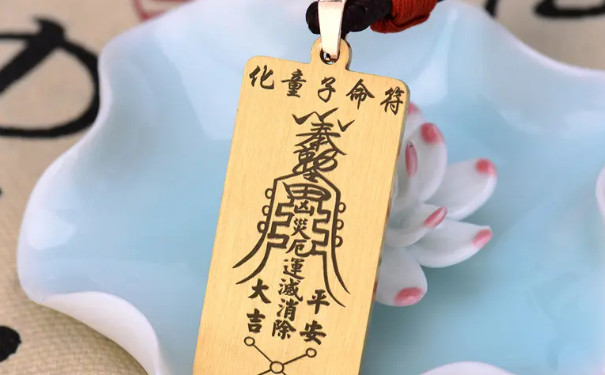 化童子命符
奉
凶災厄運滅消除
平安
大吉